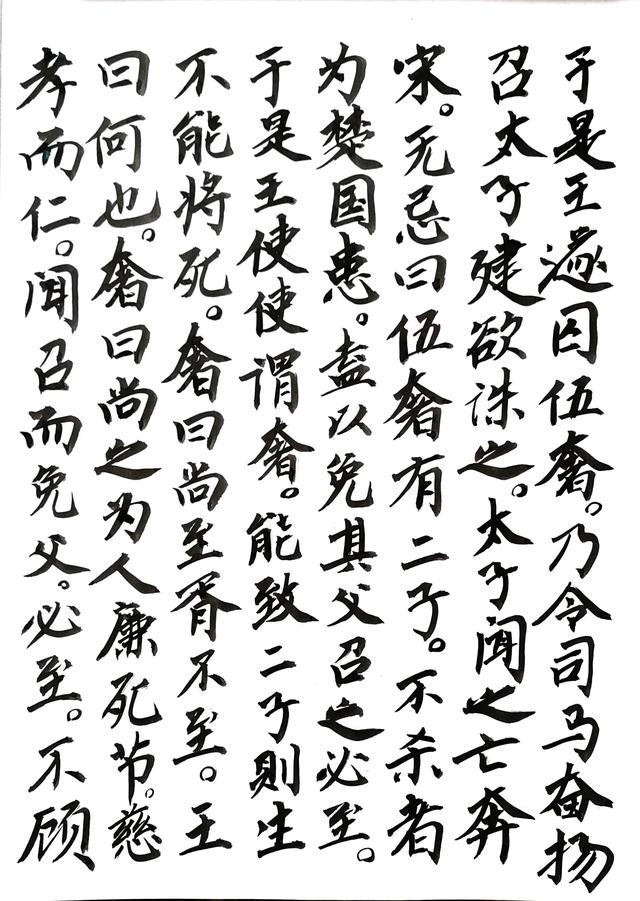 于是王遂囚伍奢。乃令司马奋扬
召太子建欲诛之。太子闻之亡奔
宋。无忌曰伍奢有二子。不杀者
为楚国患。盍以免其父召之必至。
于是王使使谓奢。能致二子則生
不能将死。奢曰尚至胥不至。王
曰何也。奢曰尚之为人廉死节。慈
孝而仁。闻召而免父。必至。不顾